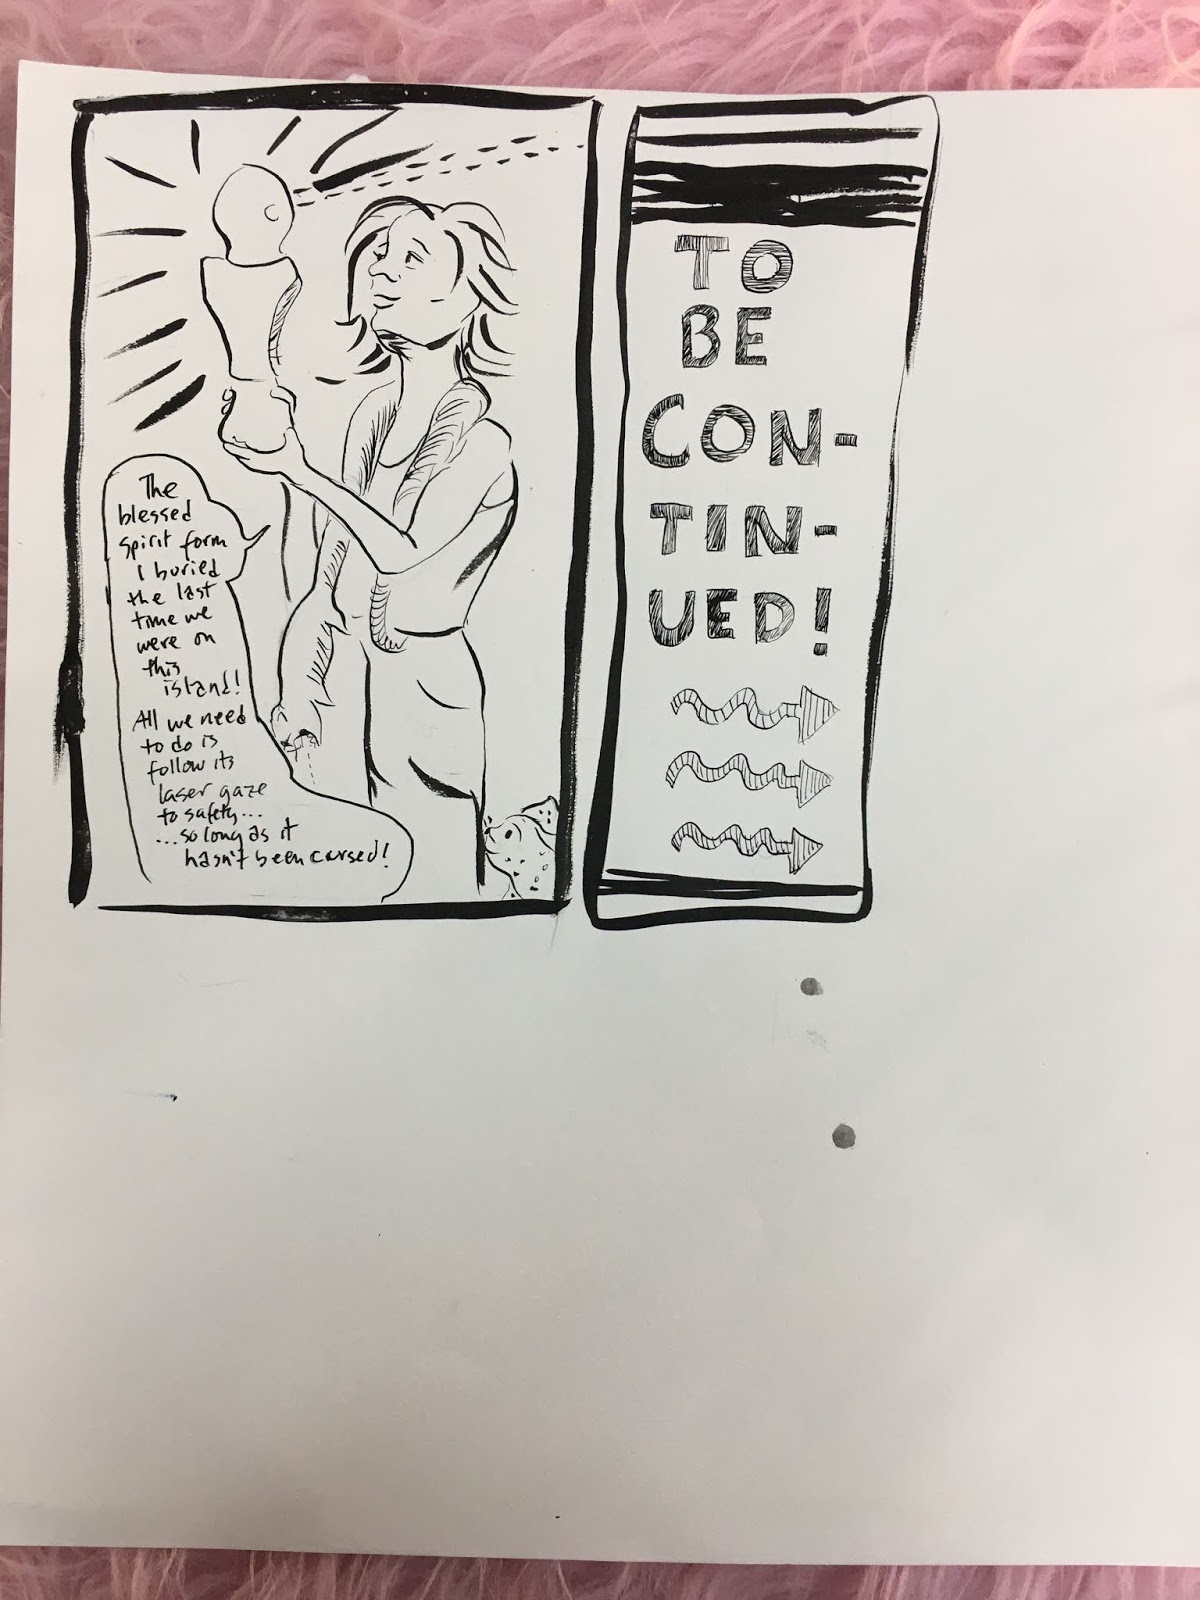 The
blessed
spirit form
I buried
the last
time we
were on
this
island!
All we need
to do is
follow its
laser gaze
to safety...
...so long as it
hasn't been cursed!
TO
BE
CON-
TIN-
UED!